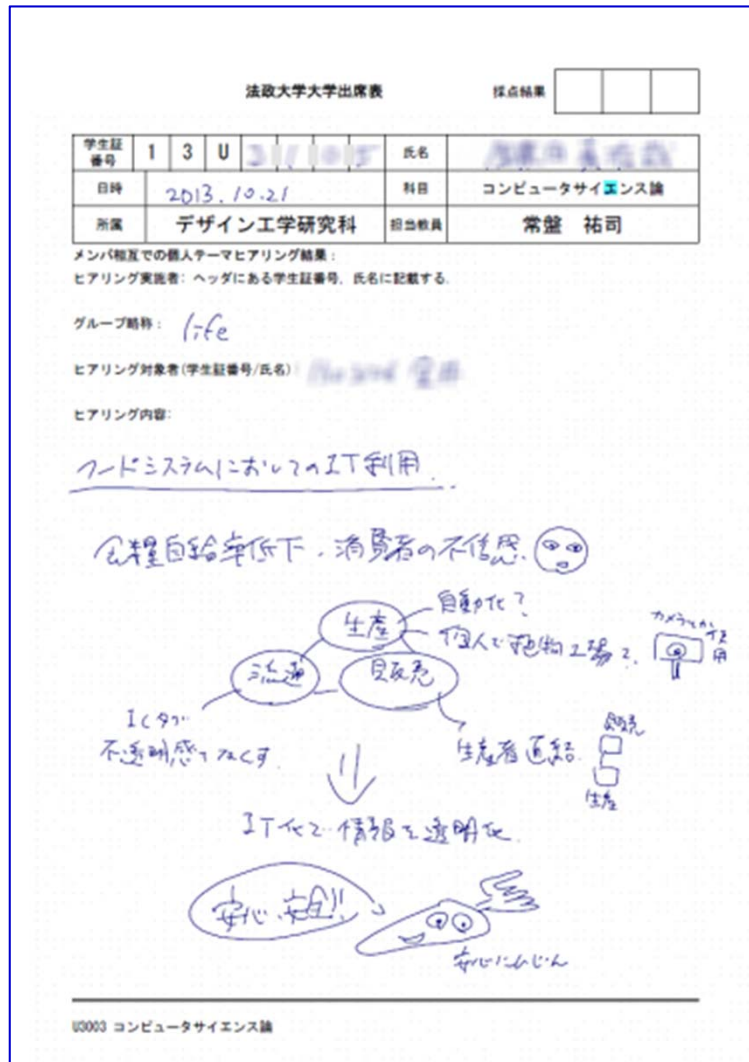 法政大学大学出席表
採点結果
学生証番号 1 3 U 氏名
日時 2013.10.21 科目 コンピュータサイエンス論
所属 デザイン工学研究科 担当教員 常盤 祐司
メンバ相互での個人テーマヒアリング結果:
ヒアリング実施者: ヘッダにある学生証番号, 氏名に記載する.
グループ略称: life
ヒアリング対象者(学生証番号/氏名):
ヒアリング内容:
フードシステムにおいてのIT利用.
食糧自給率低下・消費者の不信感.
生産
自動化?
個人で植物工場?
カメラとか使用
流通
販売
ICタグで
不透明感をなくす.
生産者直結.
販売
生産
IT化で情報を透明化.
安心、安全!!
安心にんじん
U3003 コンピュータサイエンス論